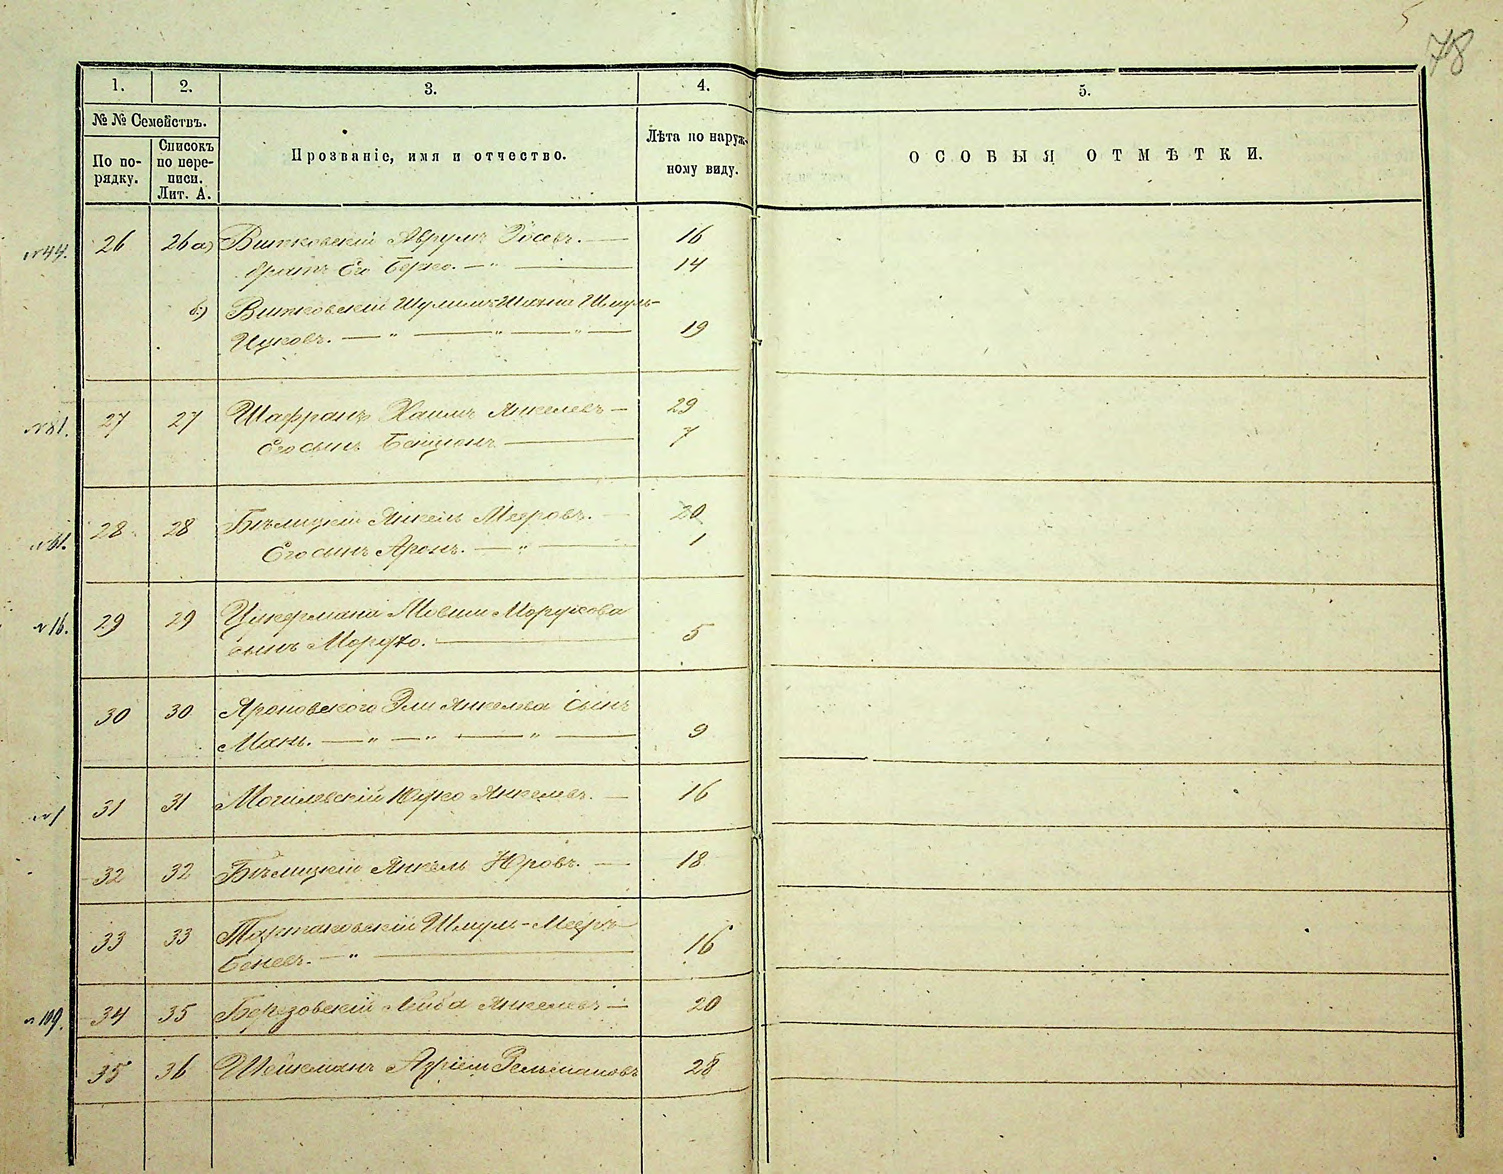 5
78
1. 2. 3. 4. 5.
№ № Семействъ.
По по-
рядку.
Списокъ
по пере-
писи.
Лит. А.
Прозваніе, имя и отчество.
Лѣта по наруж-
ному виду.
ОСОБЫЯ ОТМѢТКИ.
№44. 26 26 а) Витковскій Аврумъ Іосевъ. — 16
братъ Его Берко. — " — 14
б) Витковскій Шулимъ-Шахна Шмуль-
Ицковъ. — " — " — " — 19
№81. 27 27 Шафранъ Хаимъ Янкелевъ — 29
Его сынъ Бенціонъ — 7
№61. 28 28 Бѣлицкій Янкель Мееровъ. — 20
Его сынъ Аронъ. — " — 1
№16. 29 29 Цукермана Мовши Мордкова
сынъ Мордко. — 5
30 30 Яроповского Эли Янкелева сынъ
— " — " — " — 9
№1 31 31 Могилевскій Юдко Янкелевъ. — 16
32 32 Бѣлицкій Янкель Юровъ. — 18
33 33 Тартаковскій Шмуль-Мееръ
— " — 16
№109. 34 35 Березовскій Лейба Янкелевъ — 20
35 36 Шейкманъ Азріель Зельмановъ 28